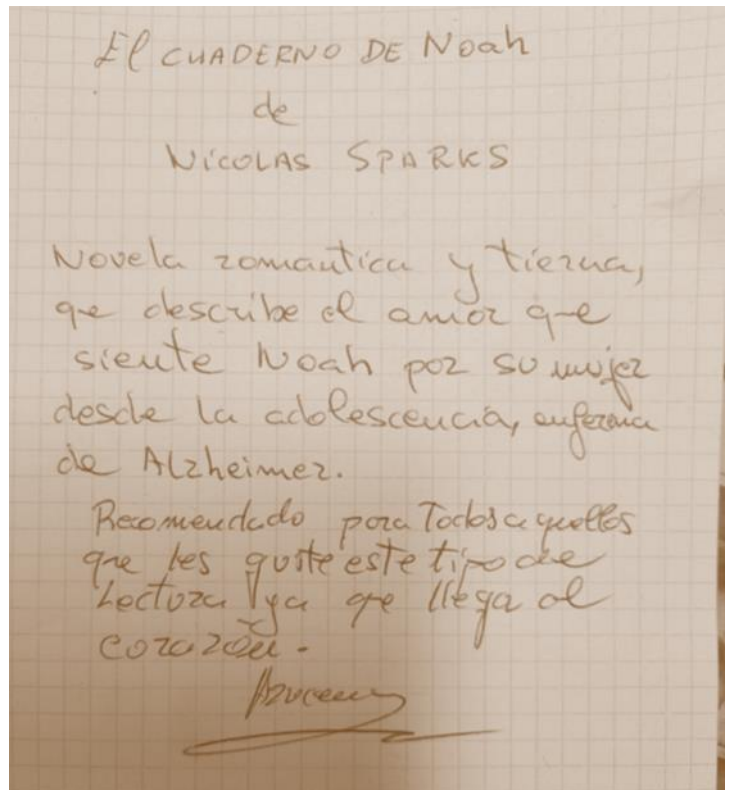 El CUADERNO DE Noah
de
NICOLAS SPARKS
Novela romantica y tierna,
que describe el amor que
siente Noah por su mujer
desde la adolescencia, enferma
de Alzheimer.
Recomendado para Todos aquellos
que les guste este tipo de
Lectura ya que llega al
corazón.
Azucena